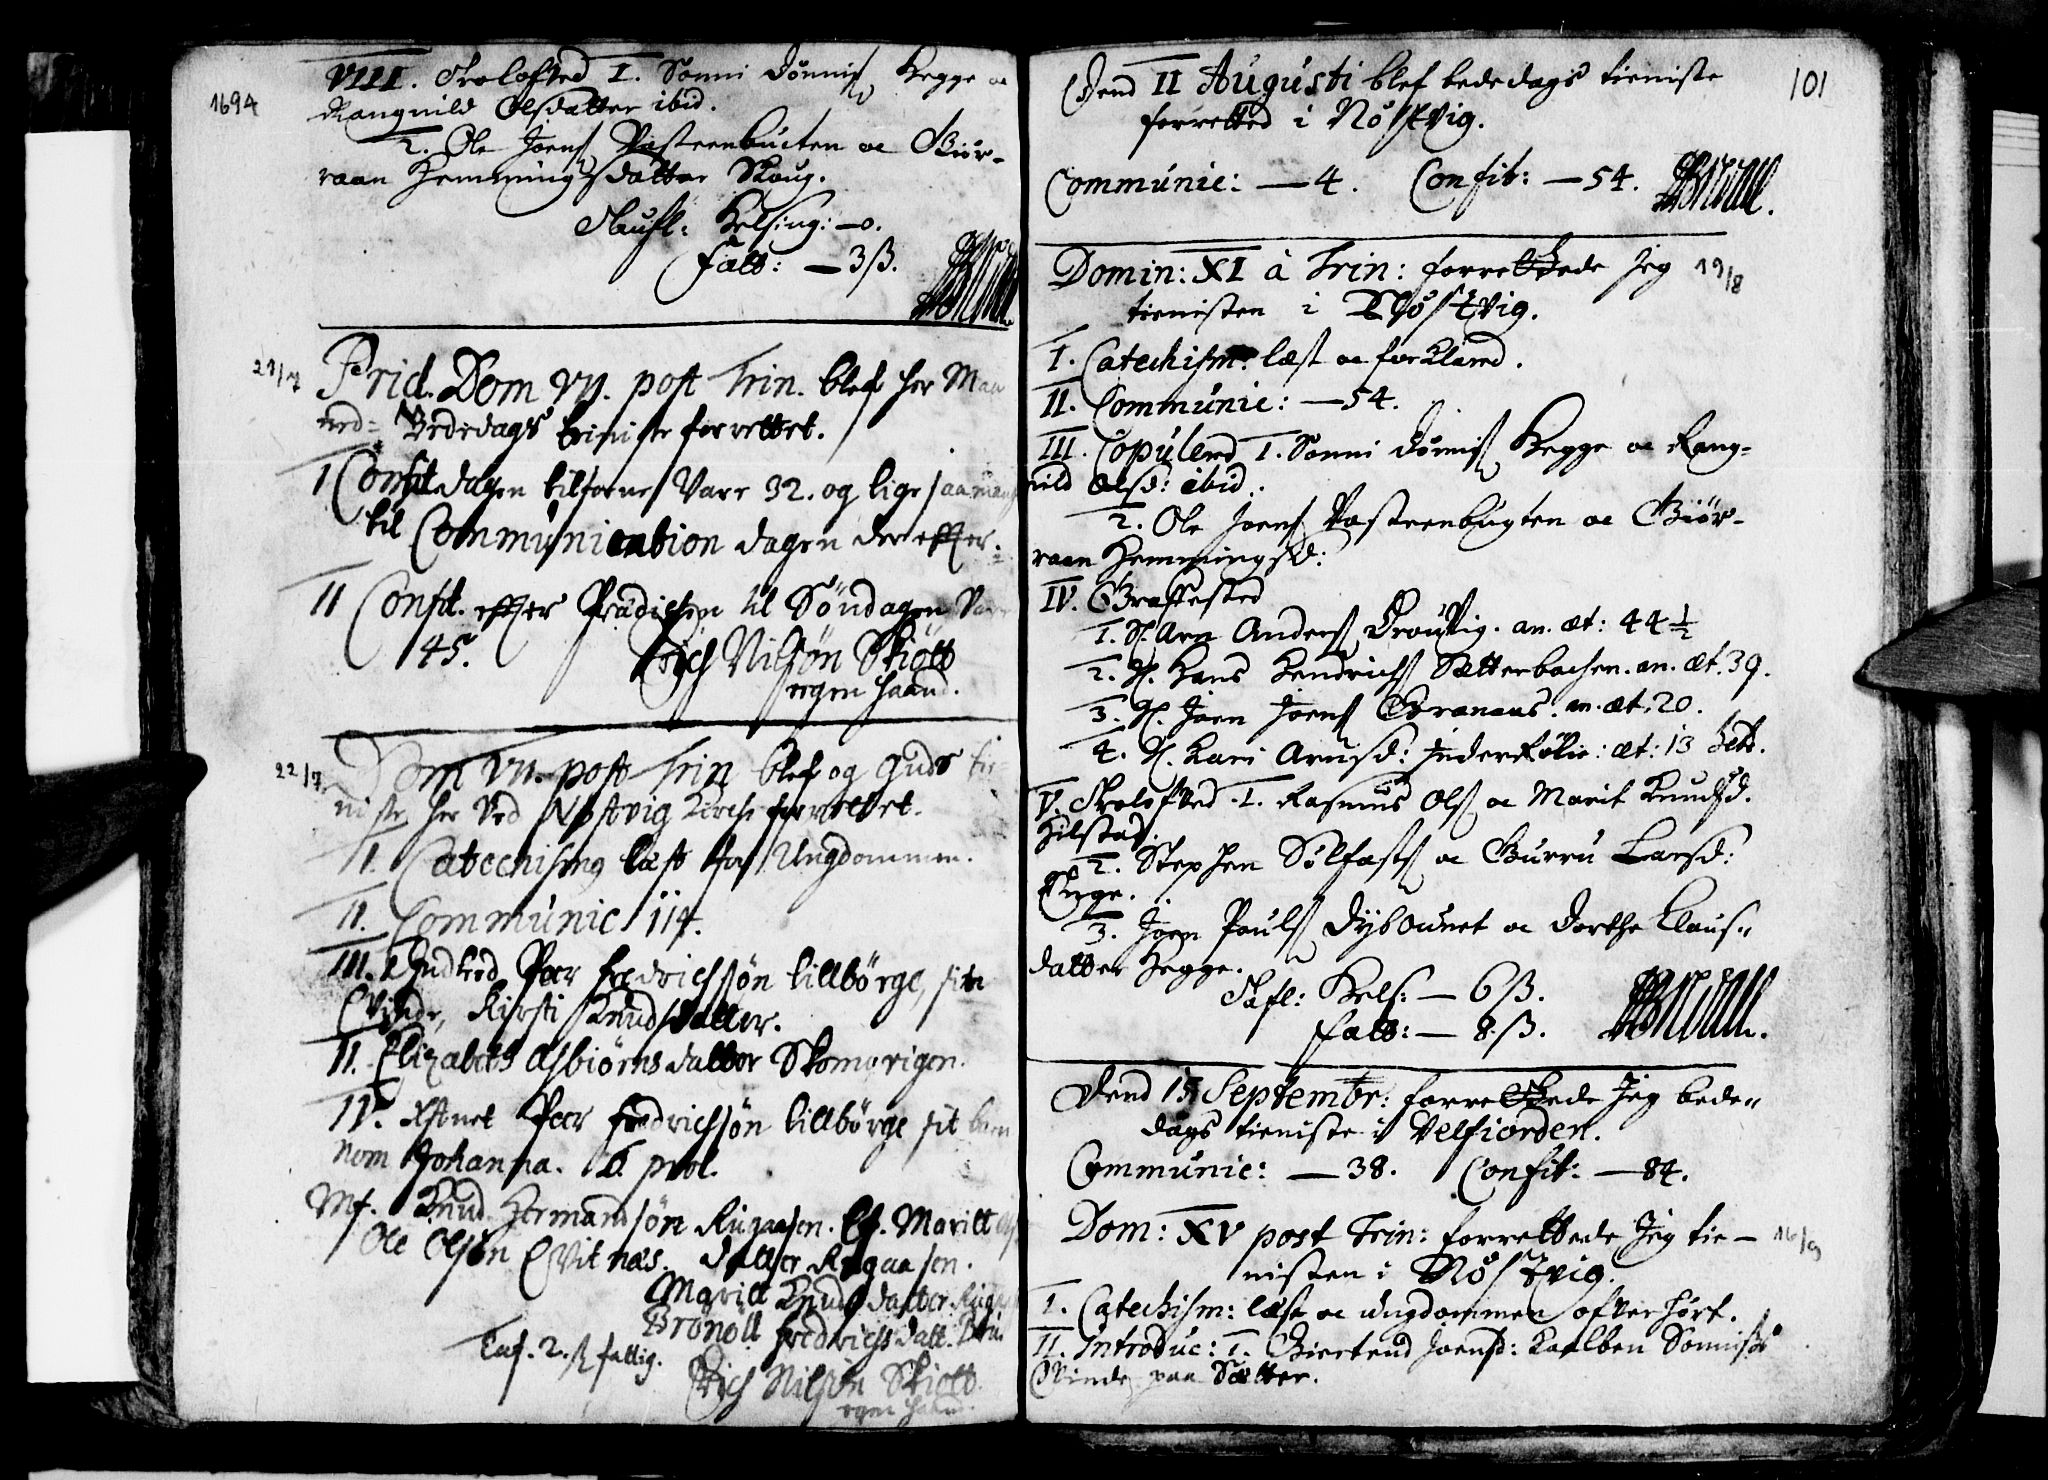 1694
VIII. Troloffved I. Sonni Dønnis Hegge oc
Rangnild Olsdatter ibid.
2. Ole Joens Vasteenbucten oc Giør-
raan Hemmingsdatter Skaug.
Taufl: Helsing: —0.
Fatt: —3ß.
21/7
Prid. Dom VII. post Trin. blef her Maa
ned= Bededags tieniste forrettet.
I Confit. dagen tilforne Vare 32. og lige saa mang
til Communication dagen der effter.
II Confit. effter Prædichen til Søndagen Vare
45. Erich Nilsøn Skiøtt
egen haand.
22/7
Dom VII. post Trin blef og Guds tie
niste her Ved Nøstvig Kirche forrettet.
I. Catechismus læst for Ungdommen.
II. Communic 114.
III. Indled Peer Fredrichssøn Tillbörge, sin
Qvinde, Kirsti Knudsdatter.
II. Elizabeth Asbiørnsdatter Skomovigen.
IV. Peer Fredrichssøn Tillbörge sit barn
nom Johanna.
Mf. Knud Hermandsøn Rugaasen. Ef. Maritt Ols
Ole Olsøn Qvitnæs. datter Rugaasen.
Maritt Knudsdatter Rugaas
Bronöll Fredrichsdatt.
Taf. 2. ß fattig.
Erich Nilsøn Skiøtt
egen haand.
101
Dend II Augusti blef bededags tieniste
forretted i Nøstvig.
Communic: —4. Confit: —54.
Domin: XI à Trin: forrettede Jeg 19/8
tienisten i Nøstvig.
I. Catechism: læst oc forklared.
II. Communic: —54.
III. Copulered I. Sonni Dønnis Hegge oc Rang-
nild Olsd: ibid.
2. Ole Joens Vasteenbugten oc Giør-
raan Hemmingsd:
IV. Graffested
1. S. Arn Anders Drouvig. an. æt: 44 1/2
2. S. Hans Hendrichs Sætterbachen. an. æt. 39.
3. S. Joen Joens Granaas. an. æt: 20.
4. S. Kari Arnisd: æt: 13 heb.
V. Troloffved 1. Rasmus Ols oc Marit Knudsd.
Hilstad.
2. Stephen Sølfasts oc Gurru Larsd:
Enge.
3. Joen Pouls Dybouent oc Dorthe Claus-
datter Hegge.
Tafl: Hels: — 6 ß.
Fatt: — 8. ß.
Dend 15 Septembr: forrettede Jeg bede-
dags tieniste i Velfiorden.
Communic: —38. Confit: —84.
Dom: XV post Trin: forrettede Jeg tie- 16/9
nisten i Nøstvig.
I. Catechism: læst oc ungdommen ofverhørt.
II. Introduc: I. Giertrud Joensd: Karlben Sonnis
Qvinde paa Sætter.